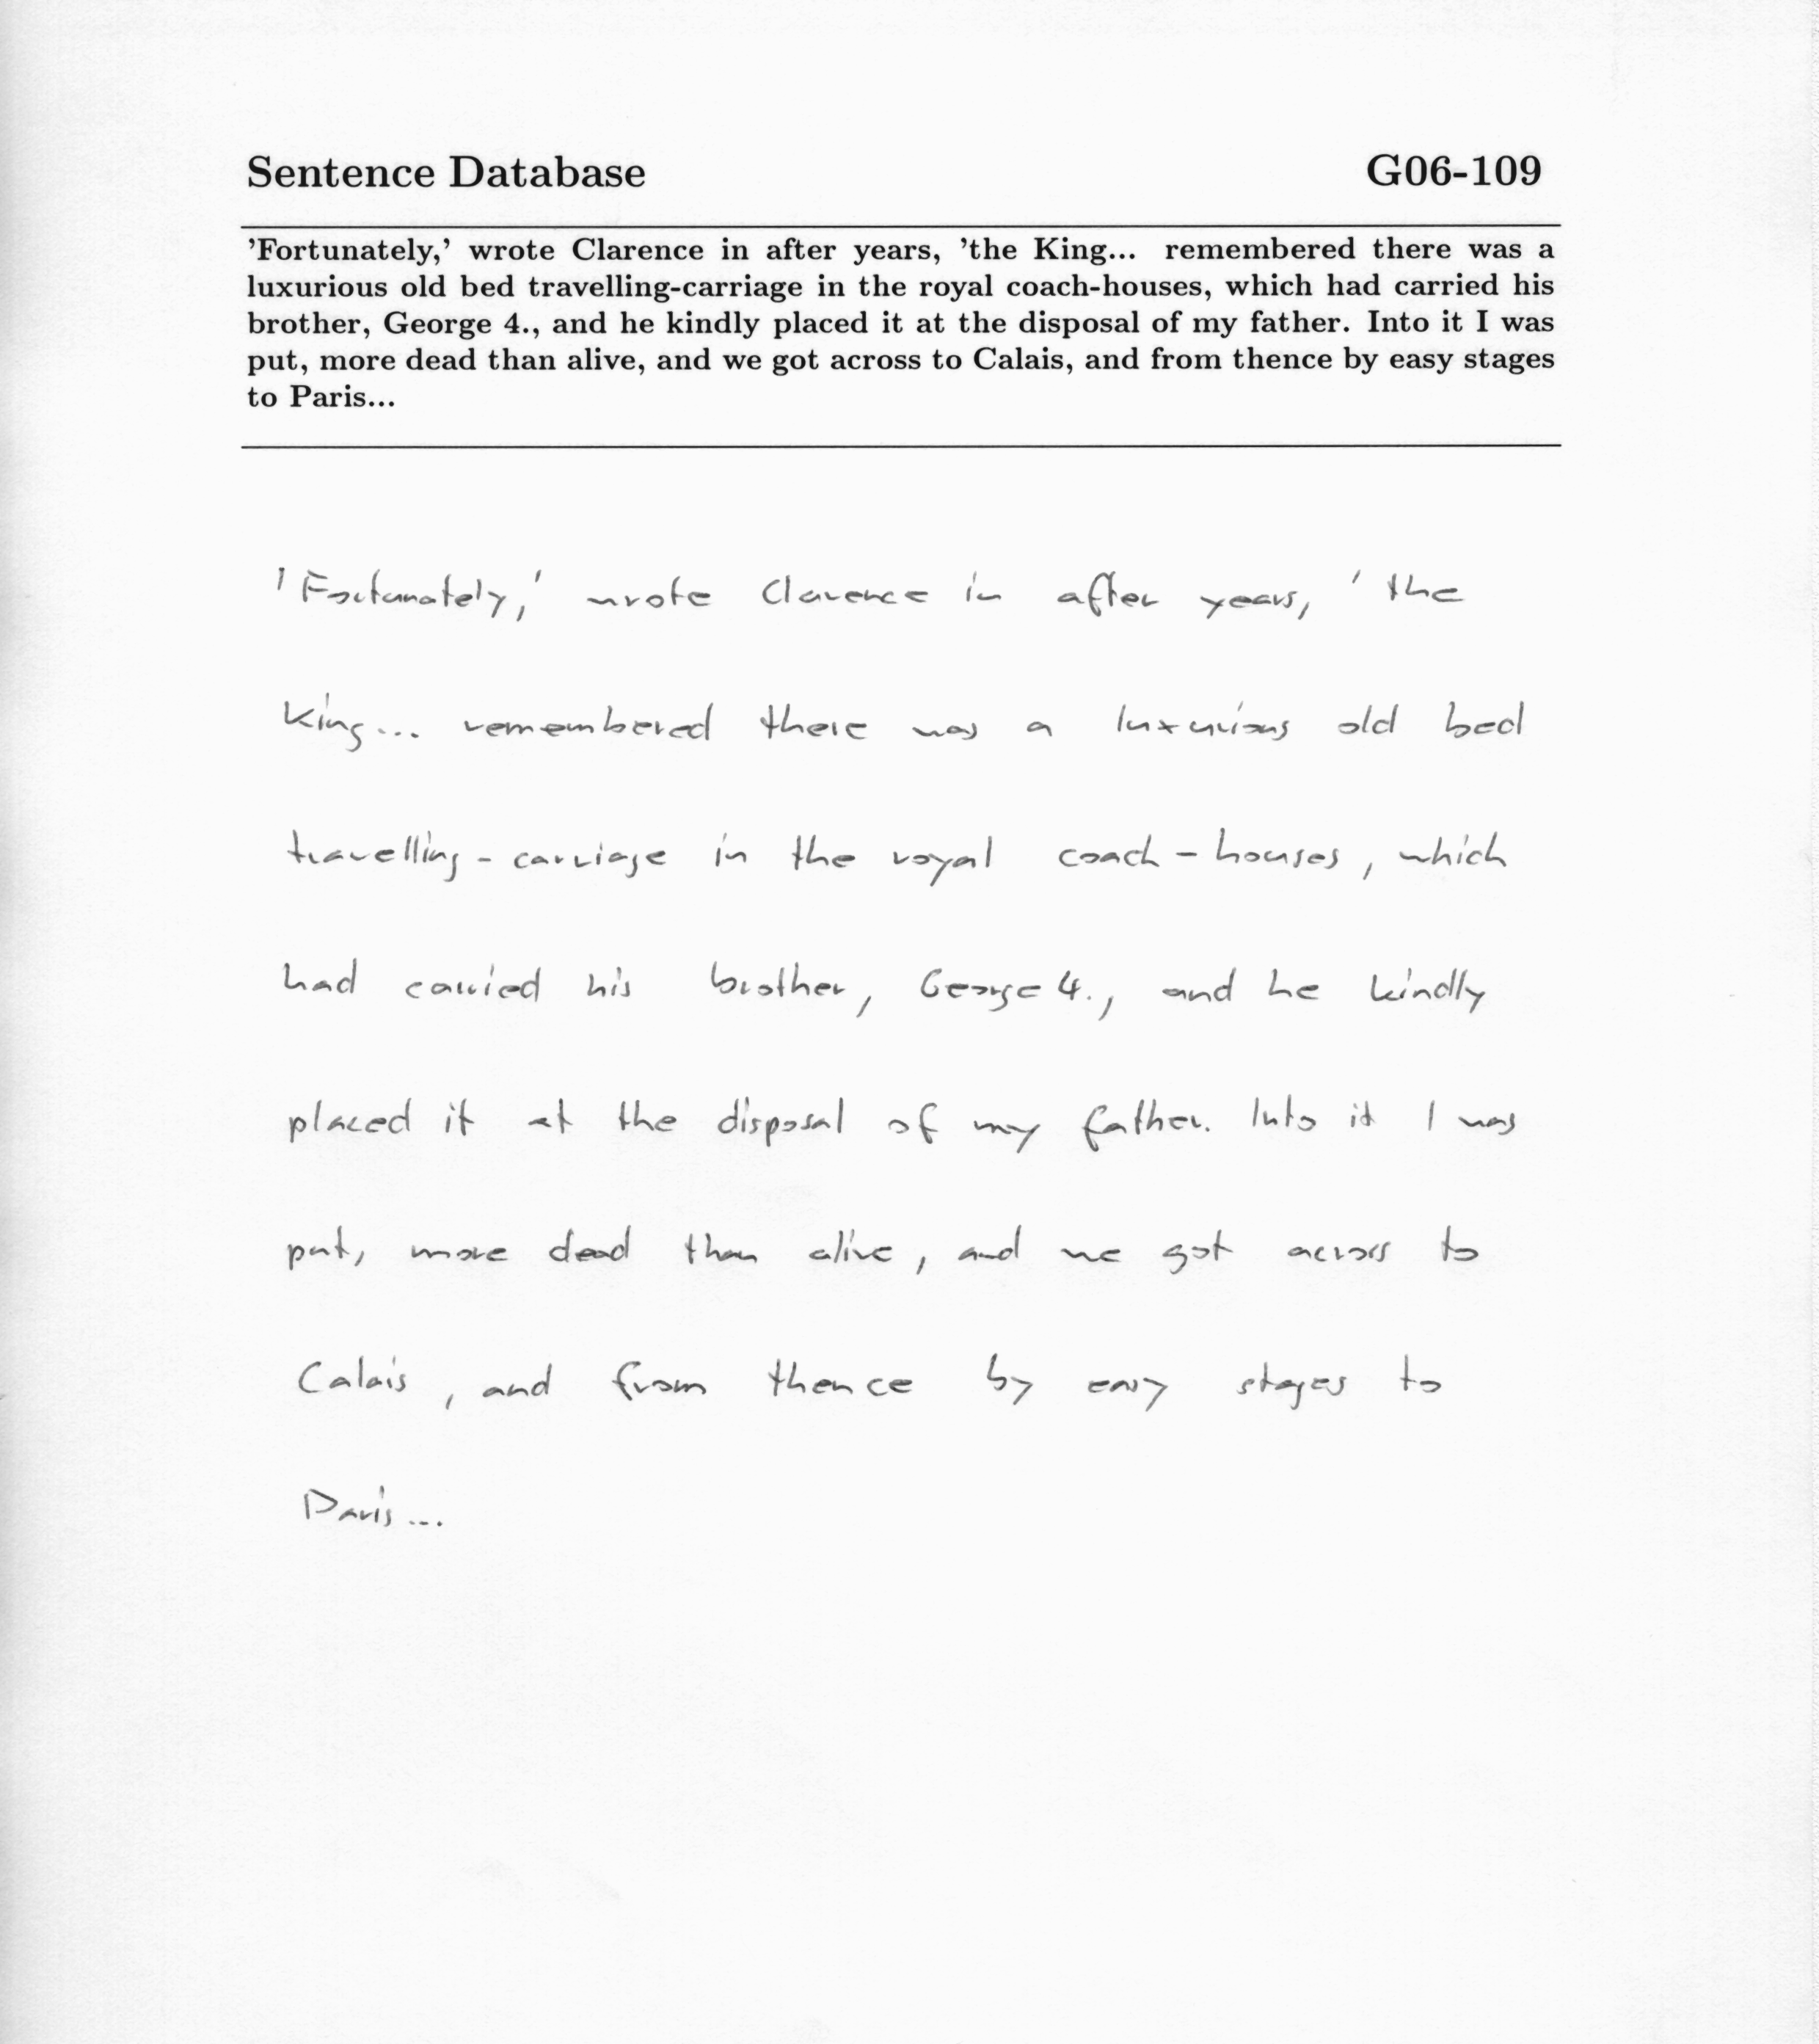 Sentence Database G06-109
'Fortunately,' wrote Clarence in after years, 'the King... remembered there was a
luxurious old bed travelling-carriage in the royal coach-houses, which had carried his
brother, George 4., and he kindly placed it at the disposal of my father. Into it I was
put, more dead than alive, and we got across to Calais, and from thence by easy stages
to Paris...
'Fortunately,' wrote Clarence in after years, 'the
King... remembered there was a luxurious old bed
travelling-carriage in the royal coach-houses, which
had carried his brother, George 4., and he kindly
placed it at the disposal of my father. Into it I was
put, more dead than alive, and we got across to
Calais, and from thence by easy stages to
Paris...